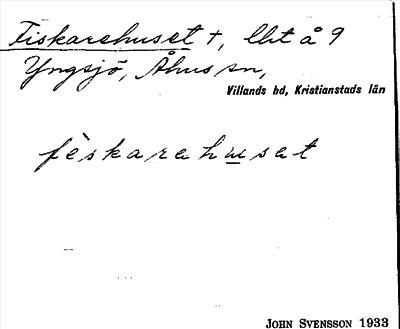 Fiskarehuset +, lht å 9
Yngsjö, Åhus sn,
Villands hd, Kristianstads län
fèskarehuset
JOHN SVENSSON 1933